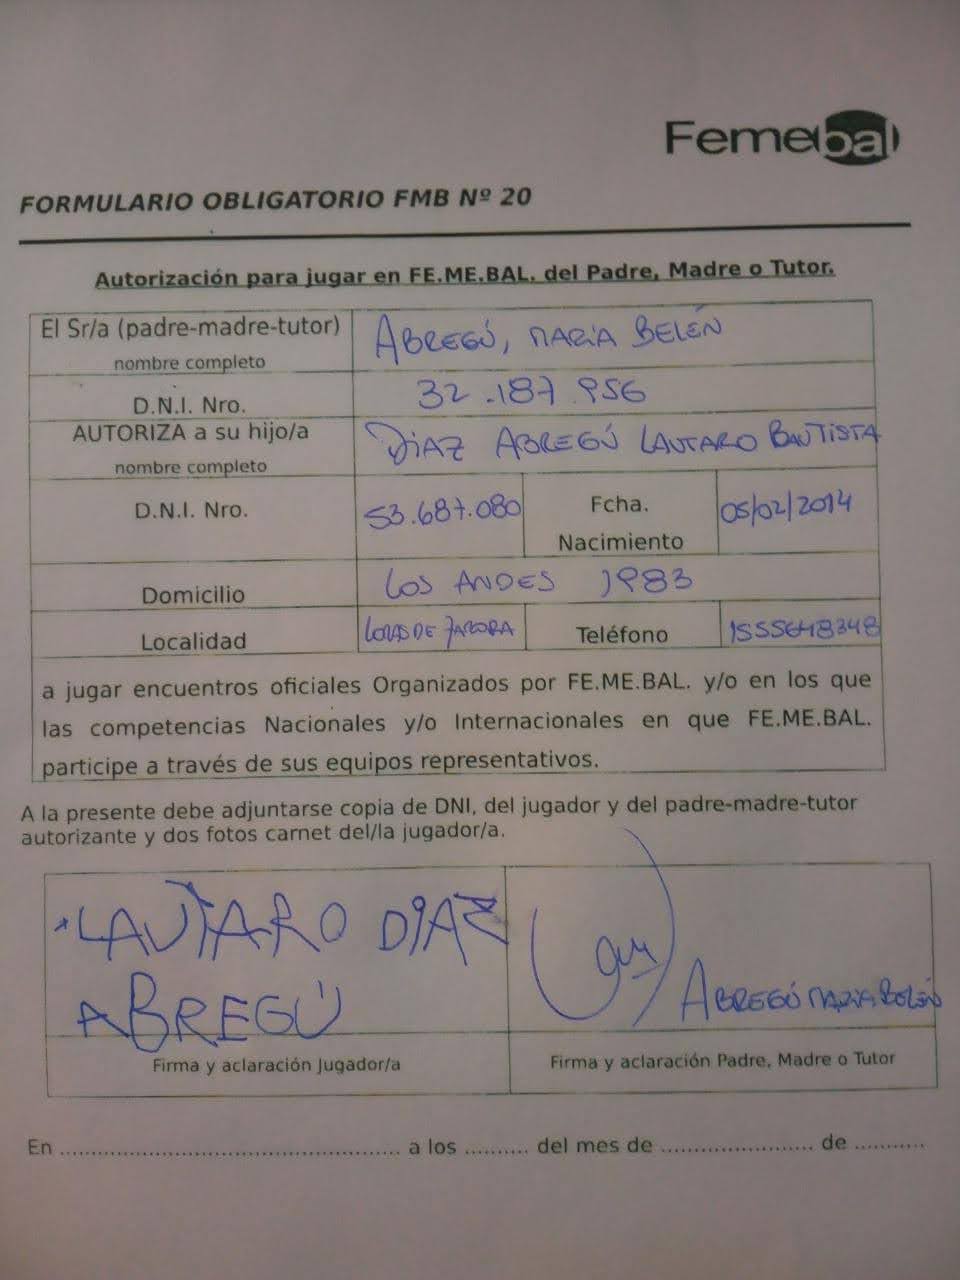 Femebal
FORMULARIO OBLIGATORIO FMB Nº 20
Autorización para jugar en FE.ME.BAL. del Padre, Madre o Tutor.
El Sr/a (padre-madre-tutor) ABREGÚ, MARÍA BELÉN
nombre completo
D.N.I. Nro. 32.187.956
AUTORIZA a su hijo/a DIAZ ABREGÚ LAUTARO BAUTISTA
nombre completo
D.N.I. Nro. 53.687.080 Fcha. 05/02/2014
Nacimiento
Domicilio LOS ANDES 1983
Localidad LOMAS DE ZAMORA Teléfono 1555648348
a jugar encuentros oficiales Organizados por FE.ME.BAL. y/o en los que
las competencias Nacionales y/o Internacionales en que FE.ME.BAL.
participe a través de sus equipos representativos.
A la presente debe adjuntarse copia de DNI, del jugador y del padre-madre-tutor
autorizante y dos fotos carnet del/la jugador/a.
LAUTARO DIAZ
ABREGÚ
ABREGÚ MARÍA BELÉN
Firma y aclaración Jugador/a Firma y aclaración Padre, Madre o Tutor
En ........................................................ a los .......... del mes de ........................ de ...........